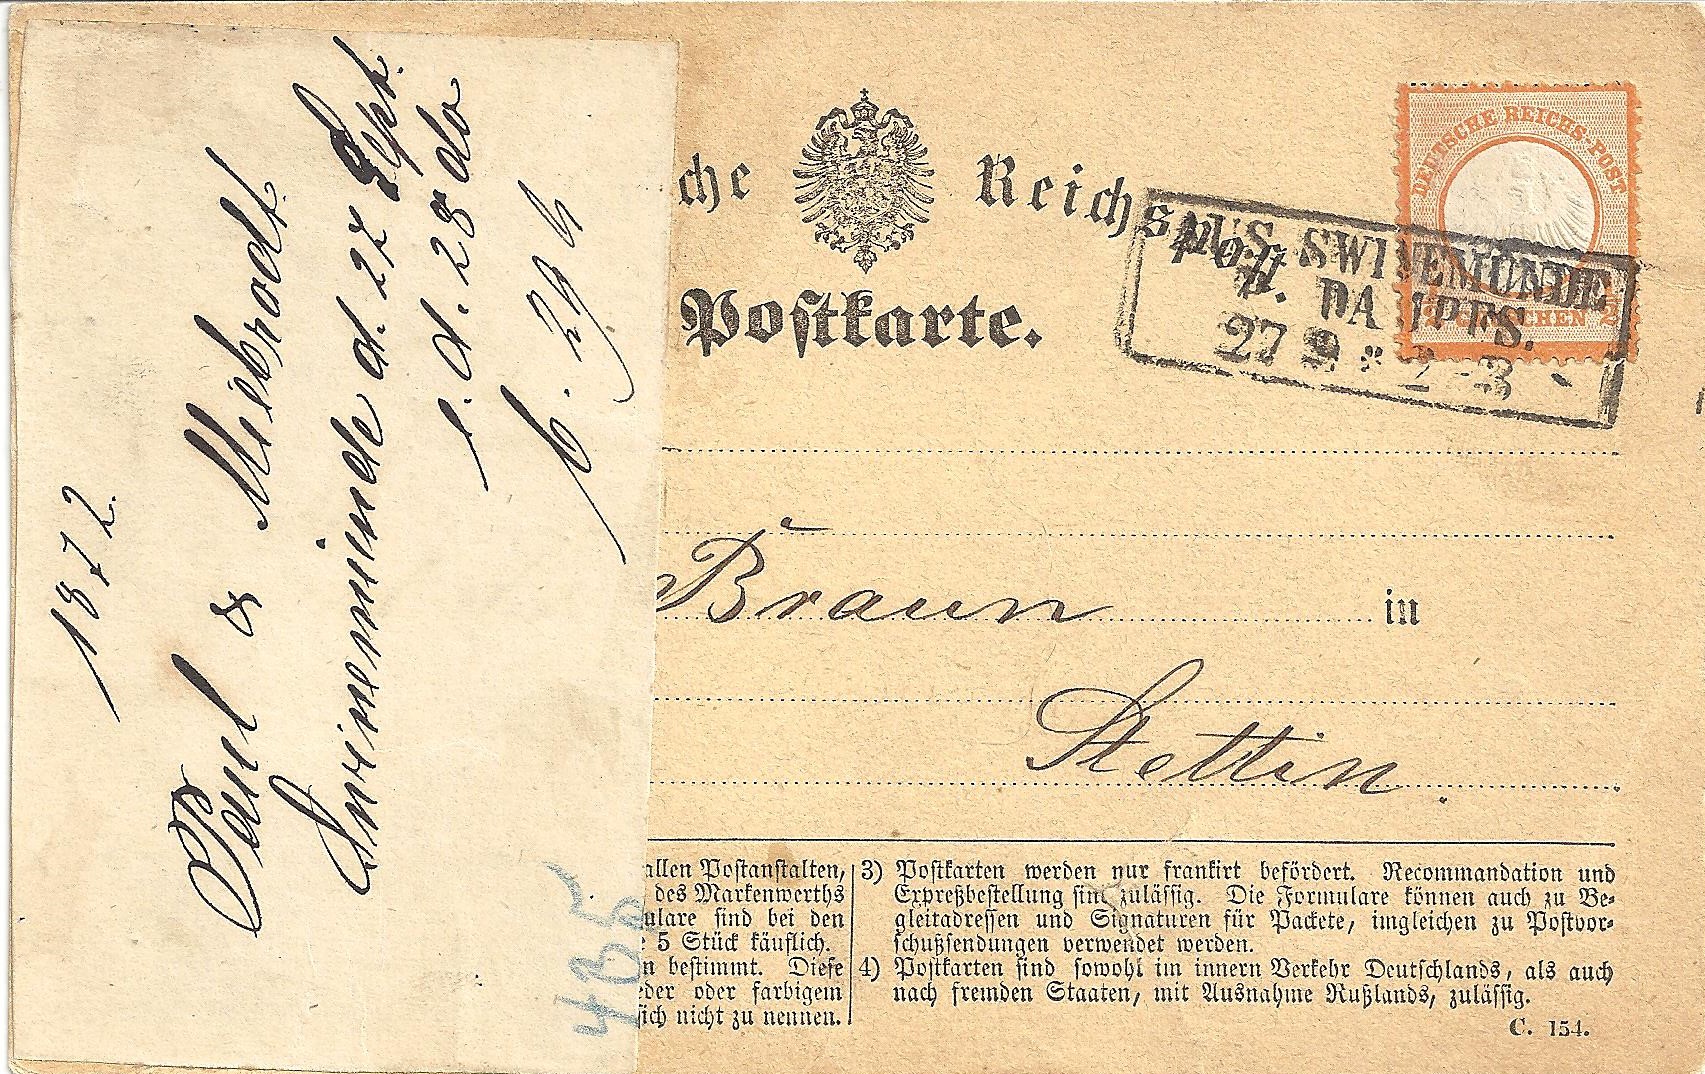 1872.
Paul & Miebrodt
Swinemünde d. 27 Sept.
e. d. 28 do
6. 294
465
che Reichspost.
Postkarte.
DEUTSCHE REICHS-POST
1/2 GROSCHEN 1/2
AUS SWINEMÜNDE
P. DAMPFS.
27 9 * 2-3
Braun in
Stettin.
allen Postanstalten,
des Markenwerths
ulare sind bei den
e 5 Stück käuflich.
n bestimmt. Diese
eder oder farbigem
sich nicht zu nennen.
3) Postkarten werden nur frankirt befördert. Recommandation und
Expreßbestellung sind zulässig. Die Formulare können auch zu Be-
gleitadressen und Signaturen für Packete, imgleichen zu Postvor-
schußsendungen verwendet werden.
4) Postkarten sind sowohl im innern Verkehr Deutschlands, als auch
nach fremden Staaten, mit Ausnahme Rußlands, zulässig.
C. 154.